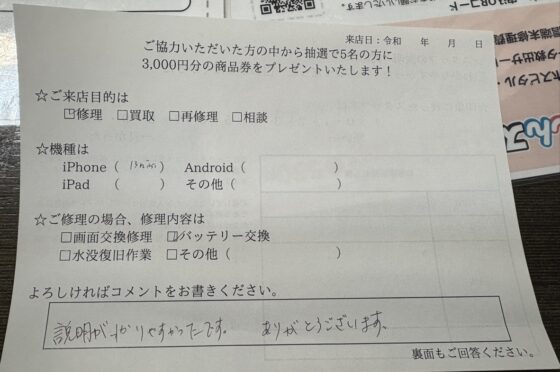 来店日：令和　年　月　日
ご協力いただいた方の中から抽選で5名の方に
3,000円分の商品券をプレゼントいたします！
☆ご来店目的は
☑修理　□買取　□再修理　□相談
☆機種は
iPhone（ 13mini ）　Android（　　　）
iPad　（　　　）　その他（　　　）
☆ご修理の場合、修理内容は
□画面交換修理　☑バッテリー交換
□水没復旧作業　□その他（　　　）
よろしければコメントをお書きください。
説明が分かりやすかったです。　ありがとうございます。
裏面もご回答ください。
QRコード
データ救出サー
ホスピタル・
んス